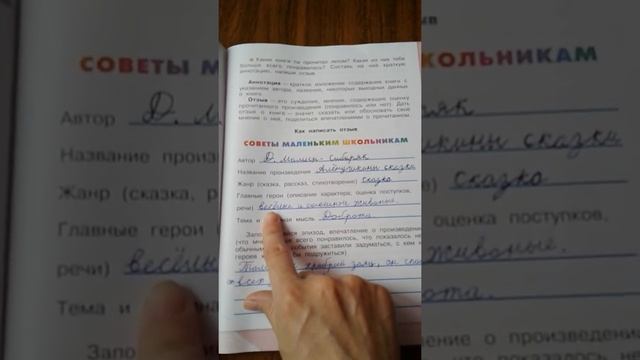 Какие книги ты прочитал летом? Какая из них тебе
больше всего понравилась? Составь на неё краткую
аннотацию, напиши отзыв.
Аннотация – краткое изложение содержания книги с
указанием автора, названия, некоторых выходных данных
о книге.
Отзыв – это суждение, мнение, содержащее оценку
прочитанного произведения (понравилось или нет). Дать
отзыв о книге – значит сказать или обосновать своё
мнение о ней, поделиться впечатлениями о прочитанном
Как написать отзыв
СОВЕТЫ МАЛЕНЬКИМ ШКОЛЬНИКАМ
Автор Д. Мамин-Сибиряк
Название произведения Алёнушкины сказки
Жанр (сказка, рассказ, стихотворение) сказка
Главные герои (описание характера, оценка поступков,
речи) весёлые и животные.
Тема и мысль Доброта.
эпизод, впечатление о произведении
(что всего понравилось, что показалось
обычным, события заставили задуматься, с кем
героев бы подружиться)
храбрый заяц, он
всех